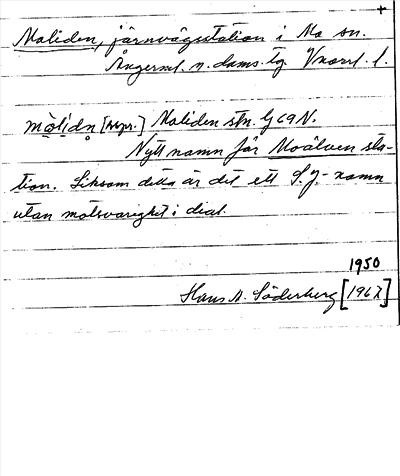 +
Moliden, järnvägsstation i Mo sn.
Ångerml. n. doms. tg. Vnorrl. l.
mòlidn̥ [rspr.] Moliden stn. Gj 69 N.
Nytt namn för Moälven sta-
tion. Liksom detta är det ett S.J.-namn
utan motsvarighet i dial.
1950
Hans N. Söderberg [1967]